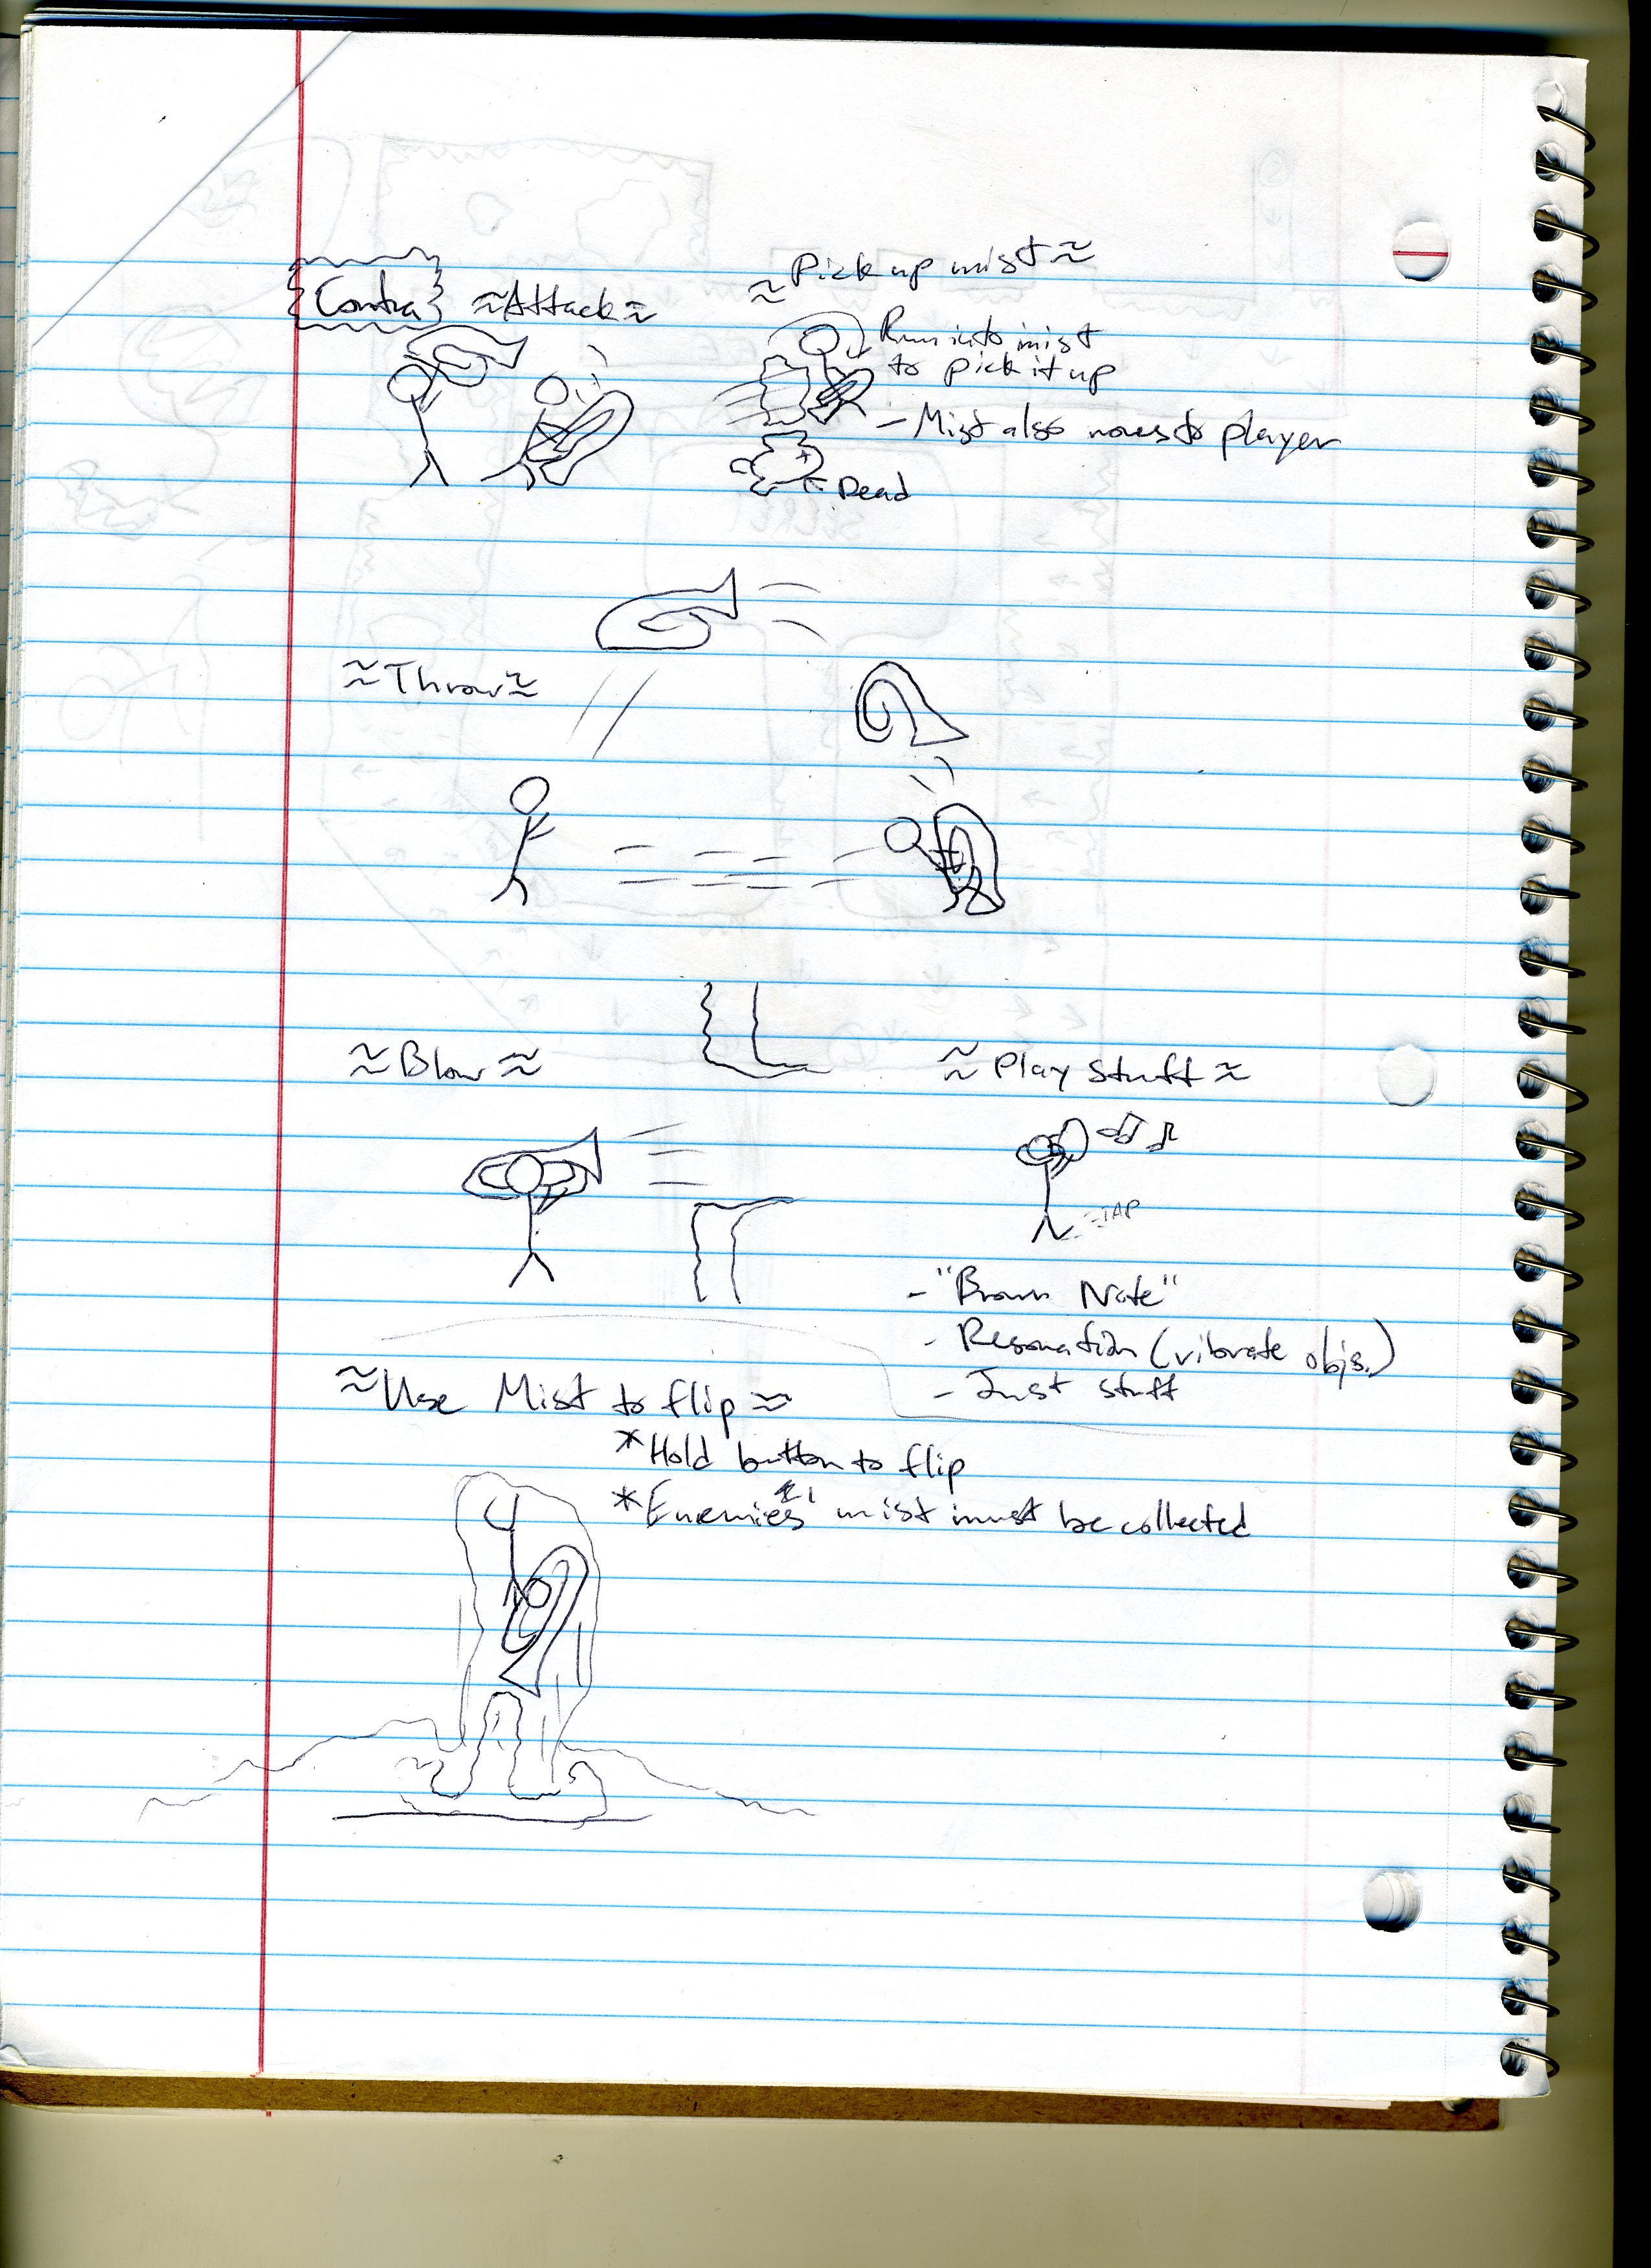 Contra
≈Attack≈
≈Pick up mist≈
Run into mist
to pick it up
- Mist also moves to player
Dead
≈Throw≈
≈Blow≈
≈Play stuff≈
TAP
- "Brown Note"
- Resonation (vibrate objs.)
- Just stuff
≈Use Mist to flip≈
*Hold button to flip
*Enemies' mist must be collected